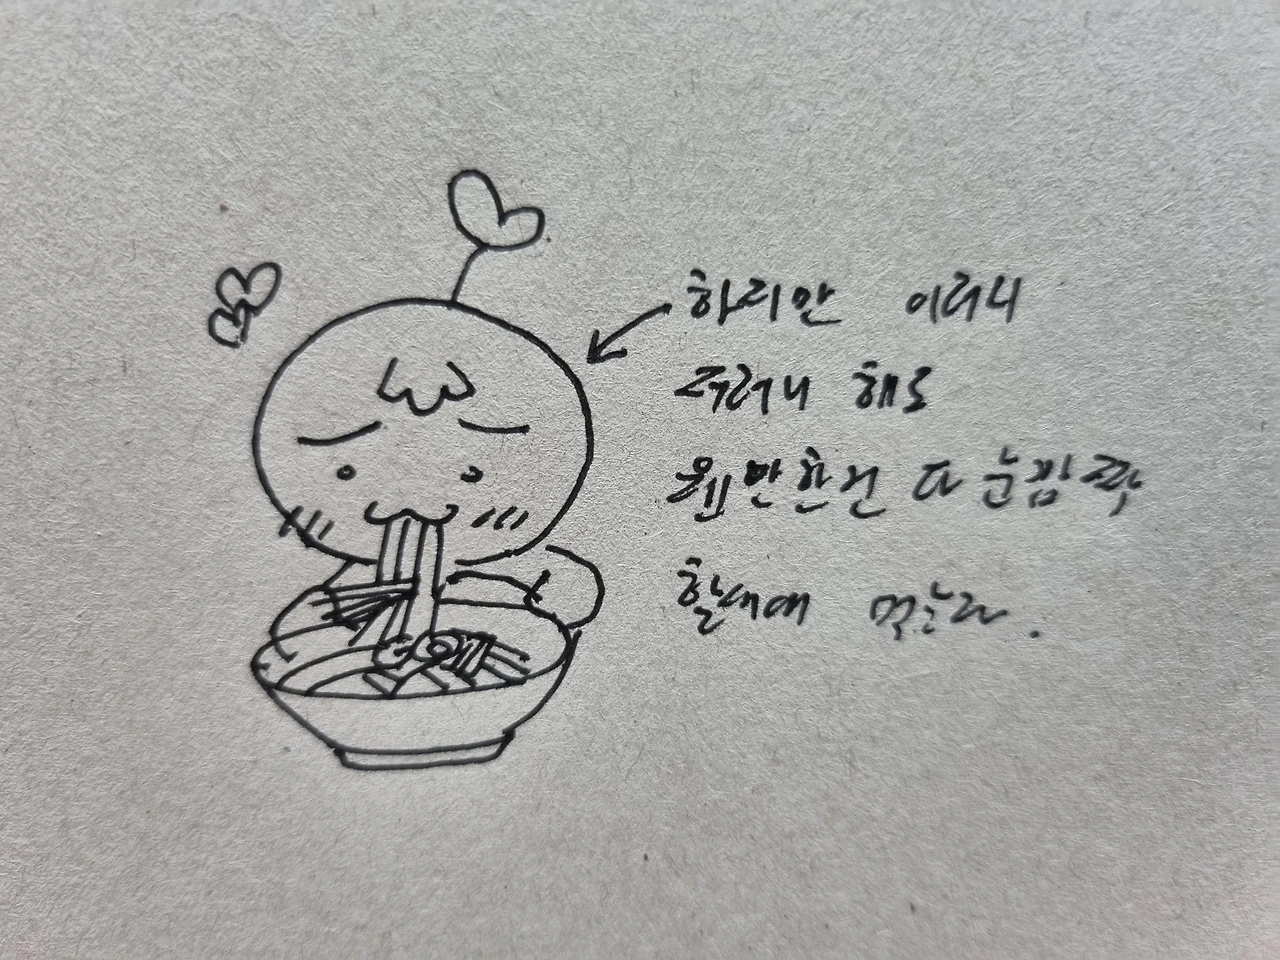 하지만 이러니
저러니 해도
웬만한건 다 눈감짝
할새에 먹는다.